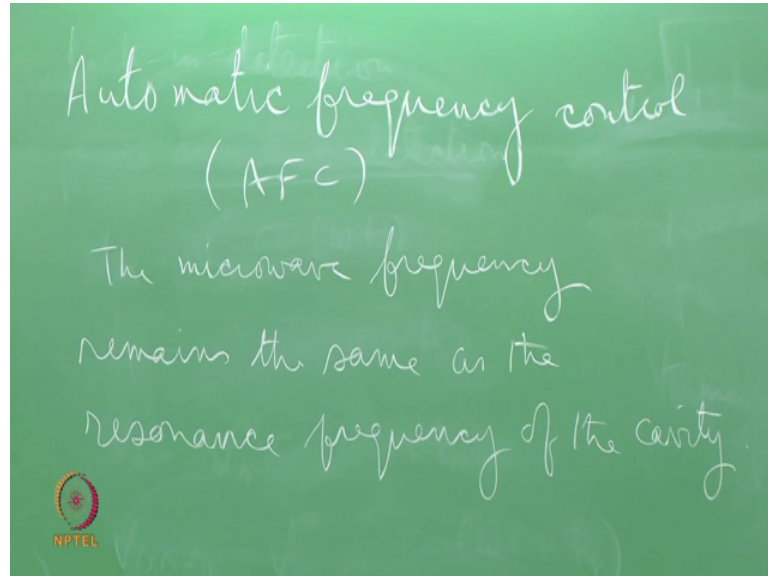 Automatic frequency control
(AFC)
The microwave frequency
remains the same as the
resonance frequency of the cavity.
NPTEL